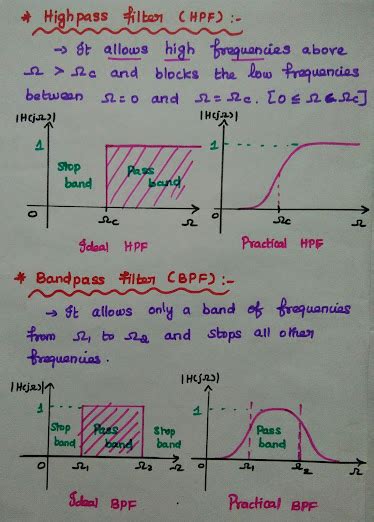 * Highpass filter (HPF) :-
→ It allows high frequencies above
Ω > Ωc and blocks the low frequencies
between Ω=0 and Ω=Ωc. [0 ≤ Ω ≤ Ωc]
|H(jΩ)| |H(jΩ)|
1 1
Stop band Pass band
0 Ωc Ω 0 Ωc Ω
Ideal HPF Practical HPF
* Bandpass filter (BPF) :-
→ It allows only a band of frequencies
from Ω1 to Ω2 and stops all other
frequencies.
|H(jΩ)| |H(jΩ)|
1 1
Stop band Pass band Stop band Pass band
0 Ω1 Ω2 Ω 0 Ω1 Ω2 Ω
Ideal BPF Practical BPF